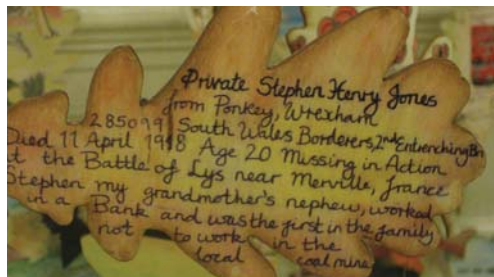 Private Stephen Henry Jones
from Ponkey, Wrexham
285099 South Wales Borderers, 2nd Entrenching Bn
Died 11 April 1918 Age 20 Missing in Action
at the Battle of Lys near Merville, France
Stephen my grandmother's nephew, worked
in a Bank and was the first in the family
not to work in the
local coal mine